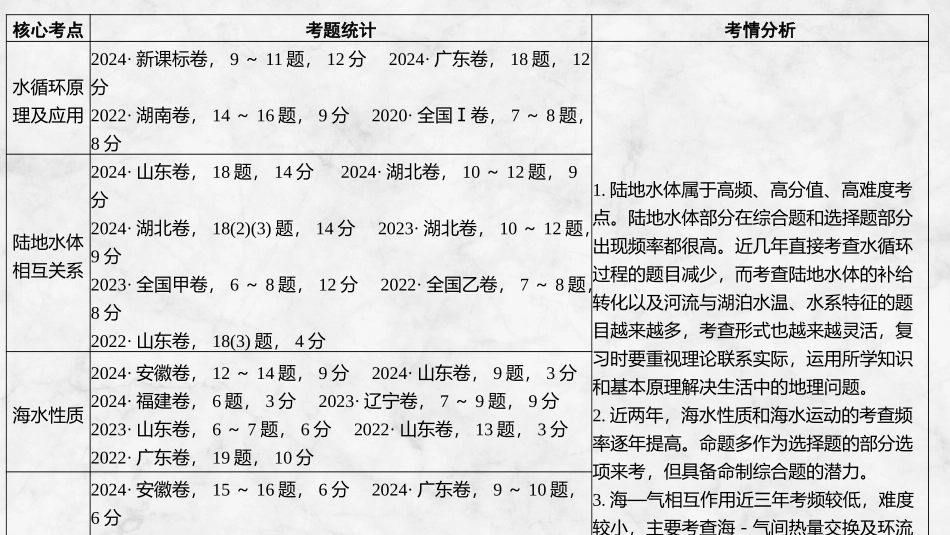 核心考点
考题统计
考情分析
水循环原
理及应用
2024· 新课标卷， 9 ～ 11 题， 12 分 2024· 广东卷， 18 题， 12
分
2022· 湖南卷， 14 ～ 16 题， 9 分 2020· 全国Ⅰ卷， 7 ～ 8 题，
8 分
陆地水体
相互关系
2024· 山东卷， 18 题， 14 分 2024· 湖北卷， 10 ～ 12 题， 9
分
2024· 湖北卷， 18(2)(3) 题， 14 分 2023· 湖北卷， 10 ～ 12 题，
9 分
2023· 全国甲卷， 6 ～ 8 题， 12 分 2022· 全国乙卷， 7 ～ 8 题，
8 分
2022· 山东卷， 18(3) 题， 4 分
海水性质
2024· 安徽卷， 12 ～ 14 题， 9 分 2024· 山东卷， 9 题， 3 分
2024· 福建卷， 6 题， 3 分 2023· 辽宁卷， 7 ～ 9 题， 9 分
2023· 山东卷， 6 ～ 7 题， 6 分 2022· 山东卷， 13 题， 3 分
2022· 广东卷， 19 题， 10 分
2024· 安徽卷， 15 ～ 16 题， 6 分 2024· 广东卷， 9 ～ 10 题，
6 分
1. 陆地水体属于高频、高分值、高难度考
点。陆地水体部分在综合题和选择题部分
出现频率都很高。近几年直接考查水循环
过程的题目减少，而考查陆地水体的补给
转化以及河流与湖泊水温、水系特征的题
目越来越多，考查形式也越来越灵活，复
习时要重视理论联系实际，运用所学知识
和基本原理解决生活中的地理问题。
2. 近两年，海水性质和海水运动的考查频
率逐年提高。命题多作为选择题的部分选
项来考，但具备命制综合题的潜力。
3. 海—气相互作用近三年考频较低，难度
较小，主要考查海－气间热量交换及环流